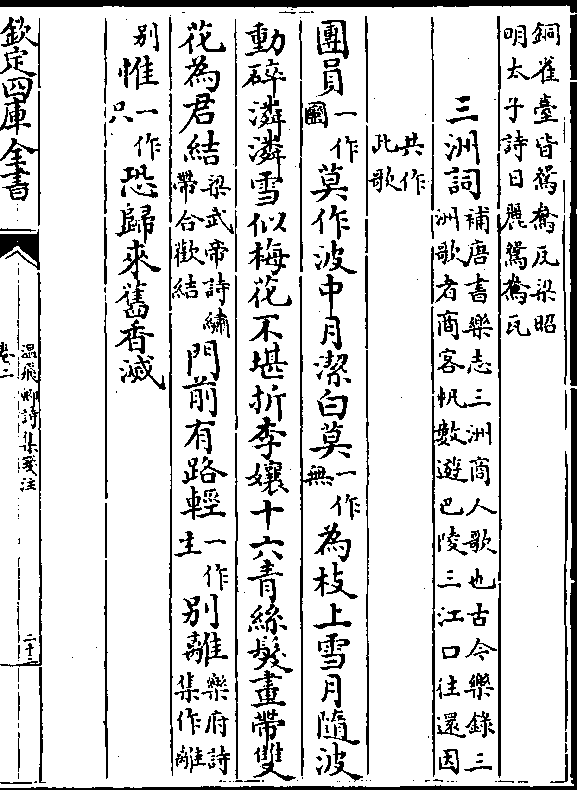 銅雀臺皆鴛鴦瓦梁昭
明太子詩日麗鴛鴦瓦
三洲詞補唐書樂志三洲商人歌也古今樂錄三
洲歌者商客帆數遊巴陵三江口往還因
共作
此歌
團員一作圞莫作波中月潔白莫一作無為枝上雪月隨波
動碎潾潾雪似梅花不堪折李孃十六青絲髮畫帶雙
花為君結梁武帝詩繡帶合歡結門前有路輕一作主別離樂府詩集作離
別惟一作只恐歸來舊香滅
欽定四庫全書
溫飛卿詩集箋注
卷二
二十三